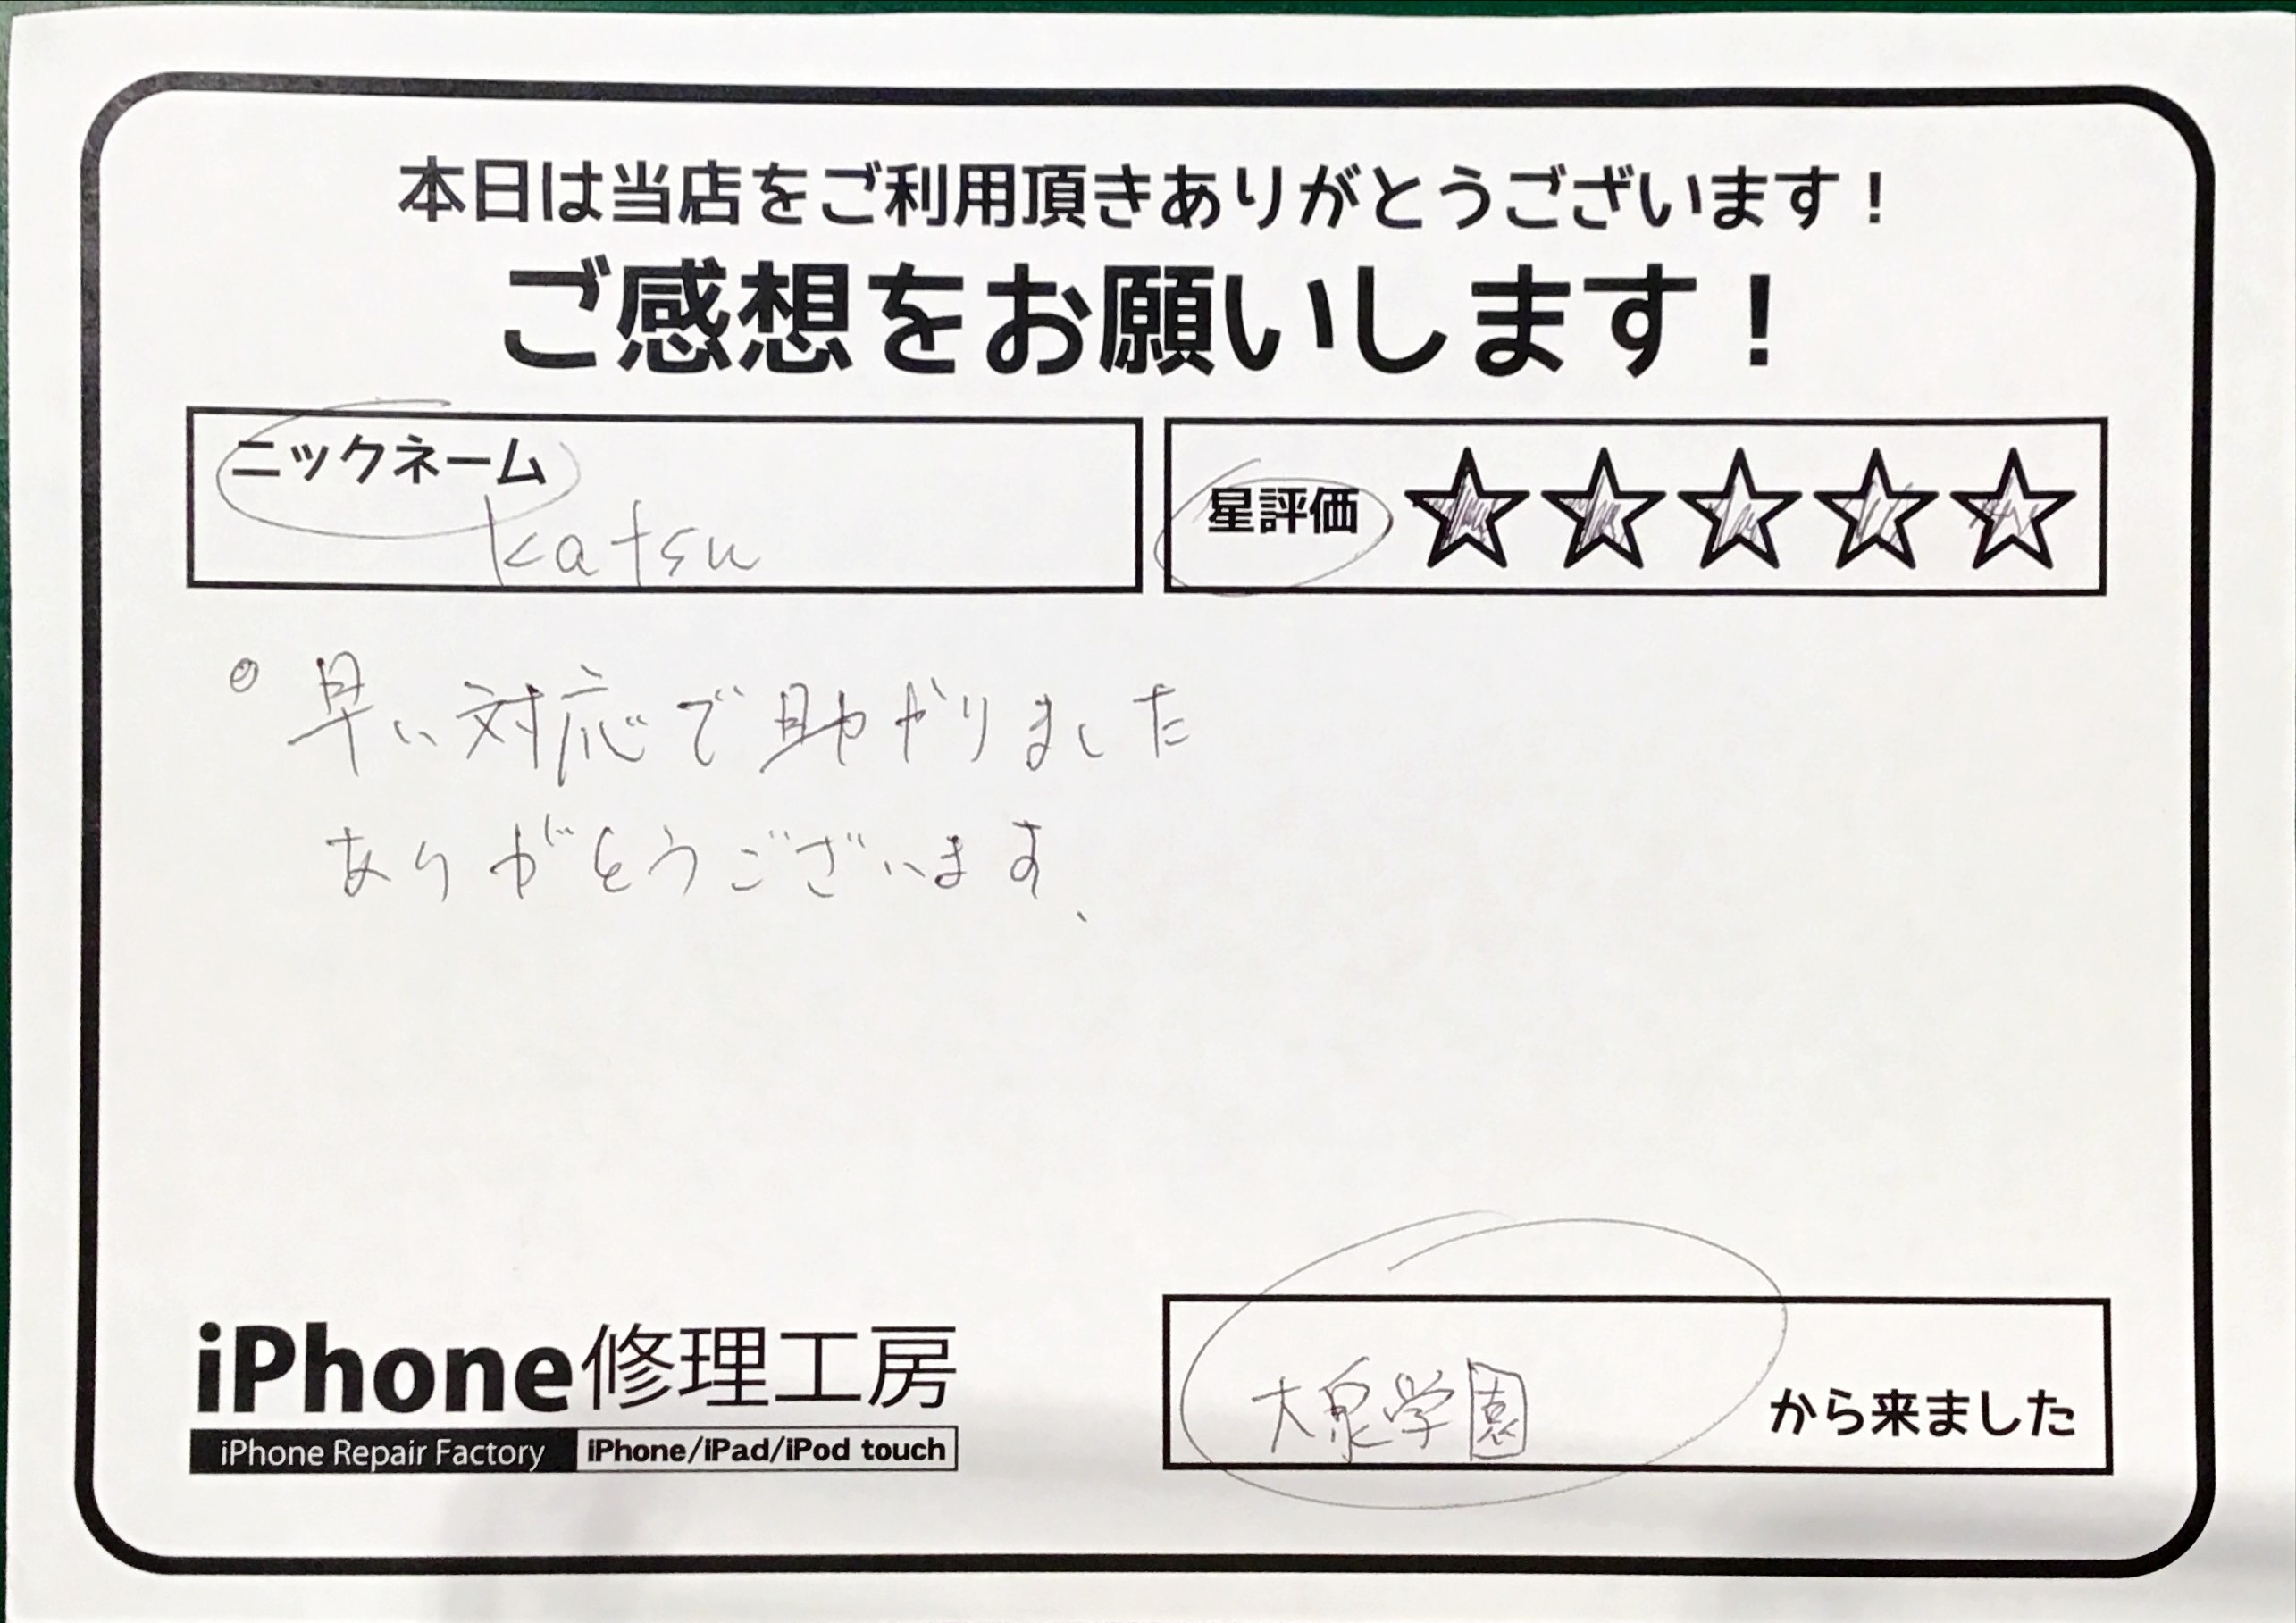 本日は当店をご利用頂きありがとうございます！
ご感想をお願いします！
ニックネーム
katsu
星評価 ★★★★★
早い対応で助かりました
ありがとうございます、
iPhone修理工房
iPhone Repair Factory iPhone/iPad/iPod touch
大泉学園 から来ました